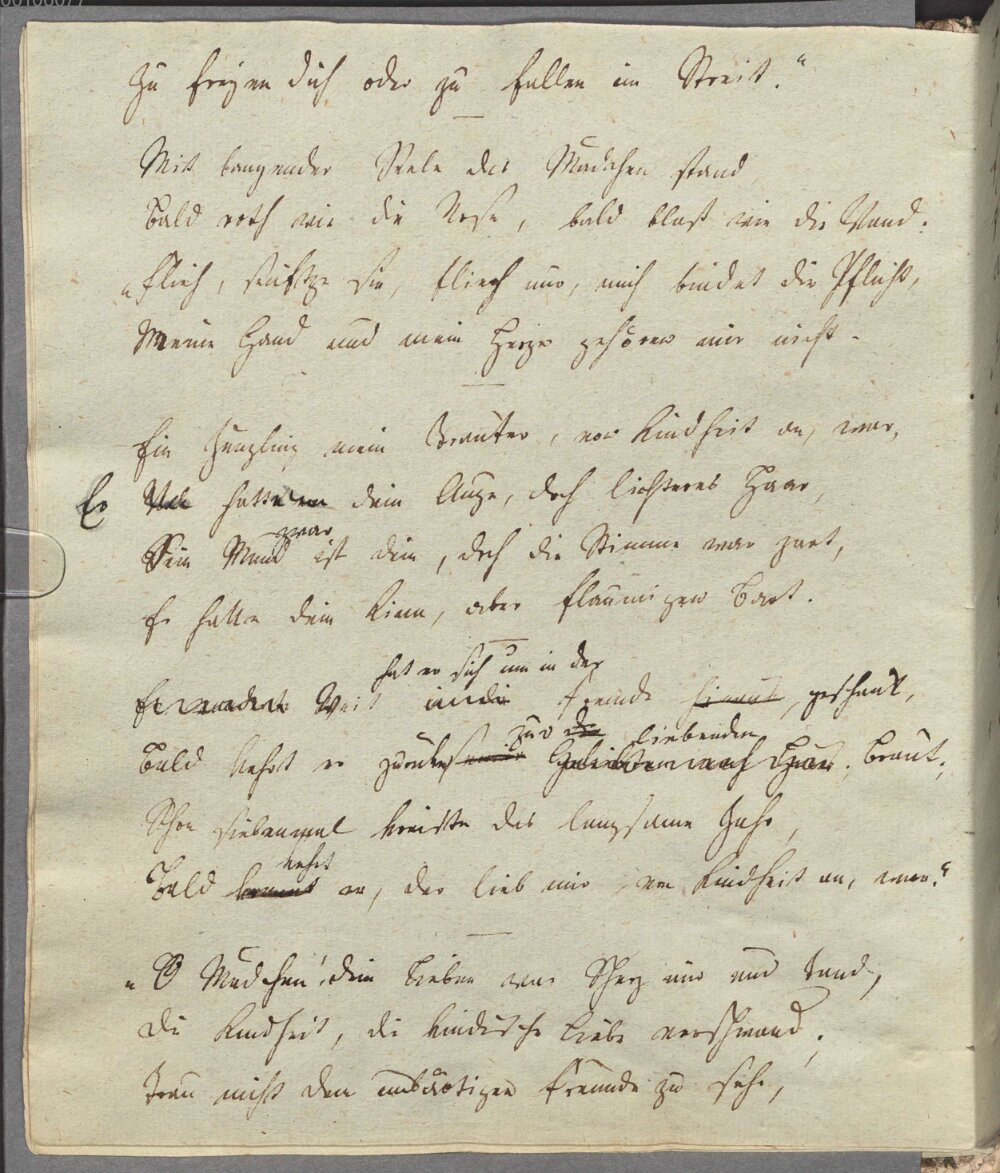 00108077
Zu freyen dich oder zu fallen im Streit.“
Mit bangender Seele das Mädchen stand,
Bald roth wie die Rose, bald blaß wie die Wand.
„Flieh, seufzte sie, flieh nur, mich bindet die Pflicht,
Meine Hand und mein Herze gehören mir nicht.
Ein Jüngling mein Trauter, von Kindheit an, war,
Er hatte dein Auge, doch lichteres Haar,
zwar
Sein Mund ist dein, doch die Stimme war zart,
Er hatte dein Kinn, aber flaumigen Bart.
hat er sich um in der
Weit in die Fremde hinaus, geschaut,
zur die liebenden
Bald kehrt er zurücke Geliebten nach Haus. Braut.
Schon siebenmal kreiste das langsame Jahr,
kehrt
Bald kommt er, der lieb mir, von Kindheit an, war.“
„O Mädchen! dein Lieben war Scherz nur und Tand,
Die Kindheit, die kindische Liebe verschwand;
Trau nicht dem unbärtigen Freunde zu sehr,